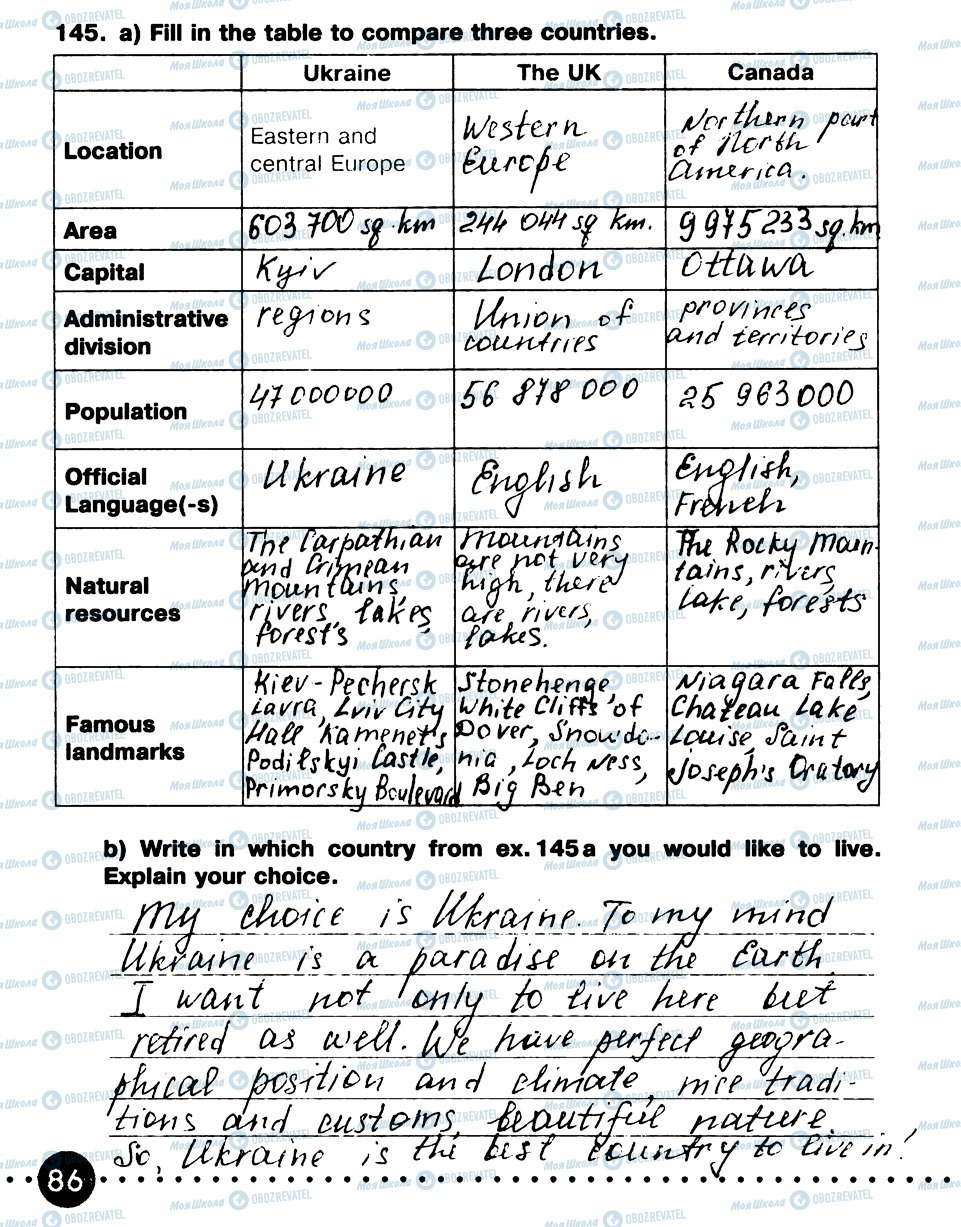 145. a) Fill in the table to compare three countries.
Ukraine
The UK
Canada
Location
Eastern and
central Europe
Western
Europe
Northern part
of North
America.
Area
603 700 sq. km
244 044 sq km.
9 975 233 sq. km
Capital
Kyiv
London
Ottawa
Administrative
division
regions
Union of
countries
provinces
and territories
Population
47 000000
56 878 000
25 963 000
Official
Language(-s)
Ukraine
English
English,
French
Natural
resources
The Carpathian
and Crimean
mountains,
rivers, lakes,
forest's
mountains
are not very
high, there
are rivers,
lakes.
The Rocky Moun-
tains, rivers,
lake, forests
Famous
landmarks
Kiev-Pechersk
Lavra, Lviv City
Hall Kamenet's
Podilskyi Castle,
Primorsky Boulevard
Stonehenge,
White Cliffs of
Dover, Snowdo-
nia, Loch Ness,
Big Ben
Niagara Falls,
Chateau Lake
Louise, Saint
Joseph's Oratory
b) Write in which country from ex. 145 a you would like to live.
Explain your choice.
My choice is Ukraine. To my mind
Ukraine is a paradise on the Earth.
I want not only to live here but
retired as well. We have perfect geogra-
phical position and climate, nice tradi-
tions and customs, beautiful nature.
So, Ukraine is the best country to live in!
86
Моя Школа OBOZREVATEL